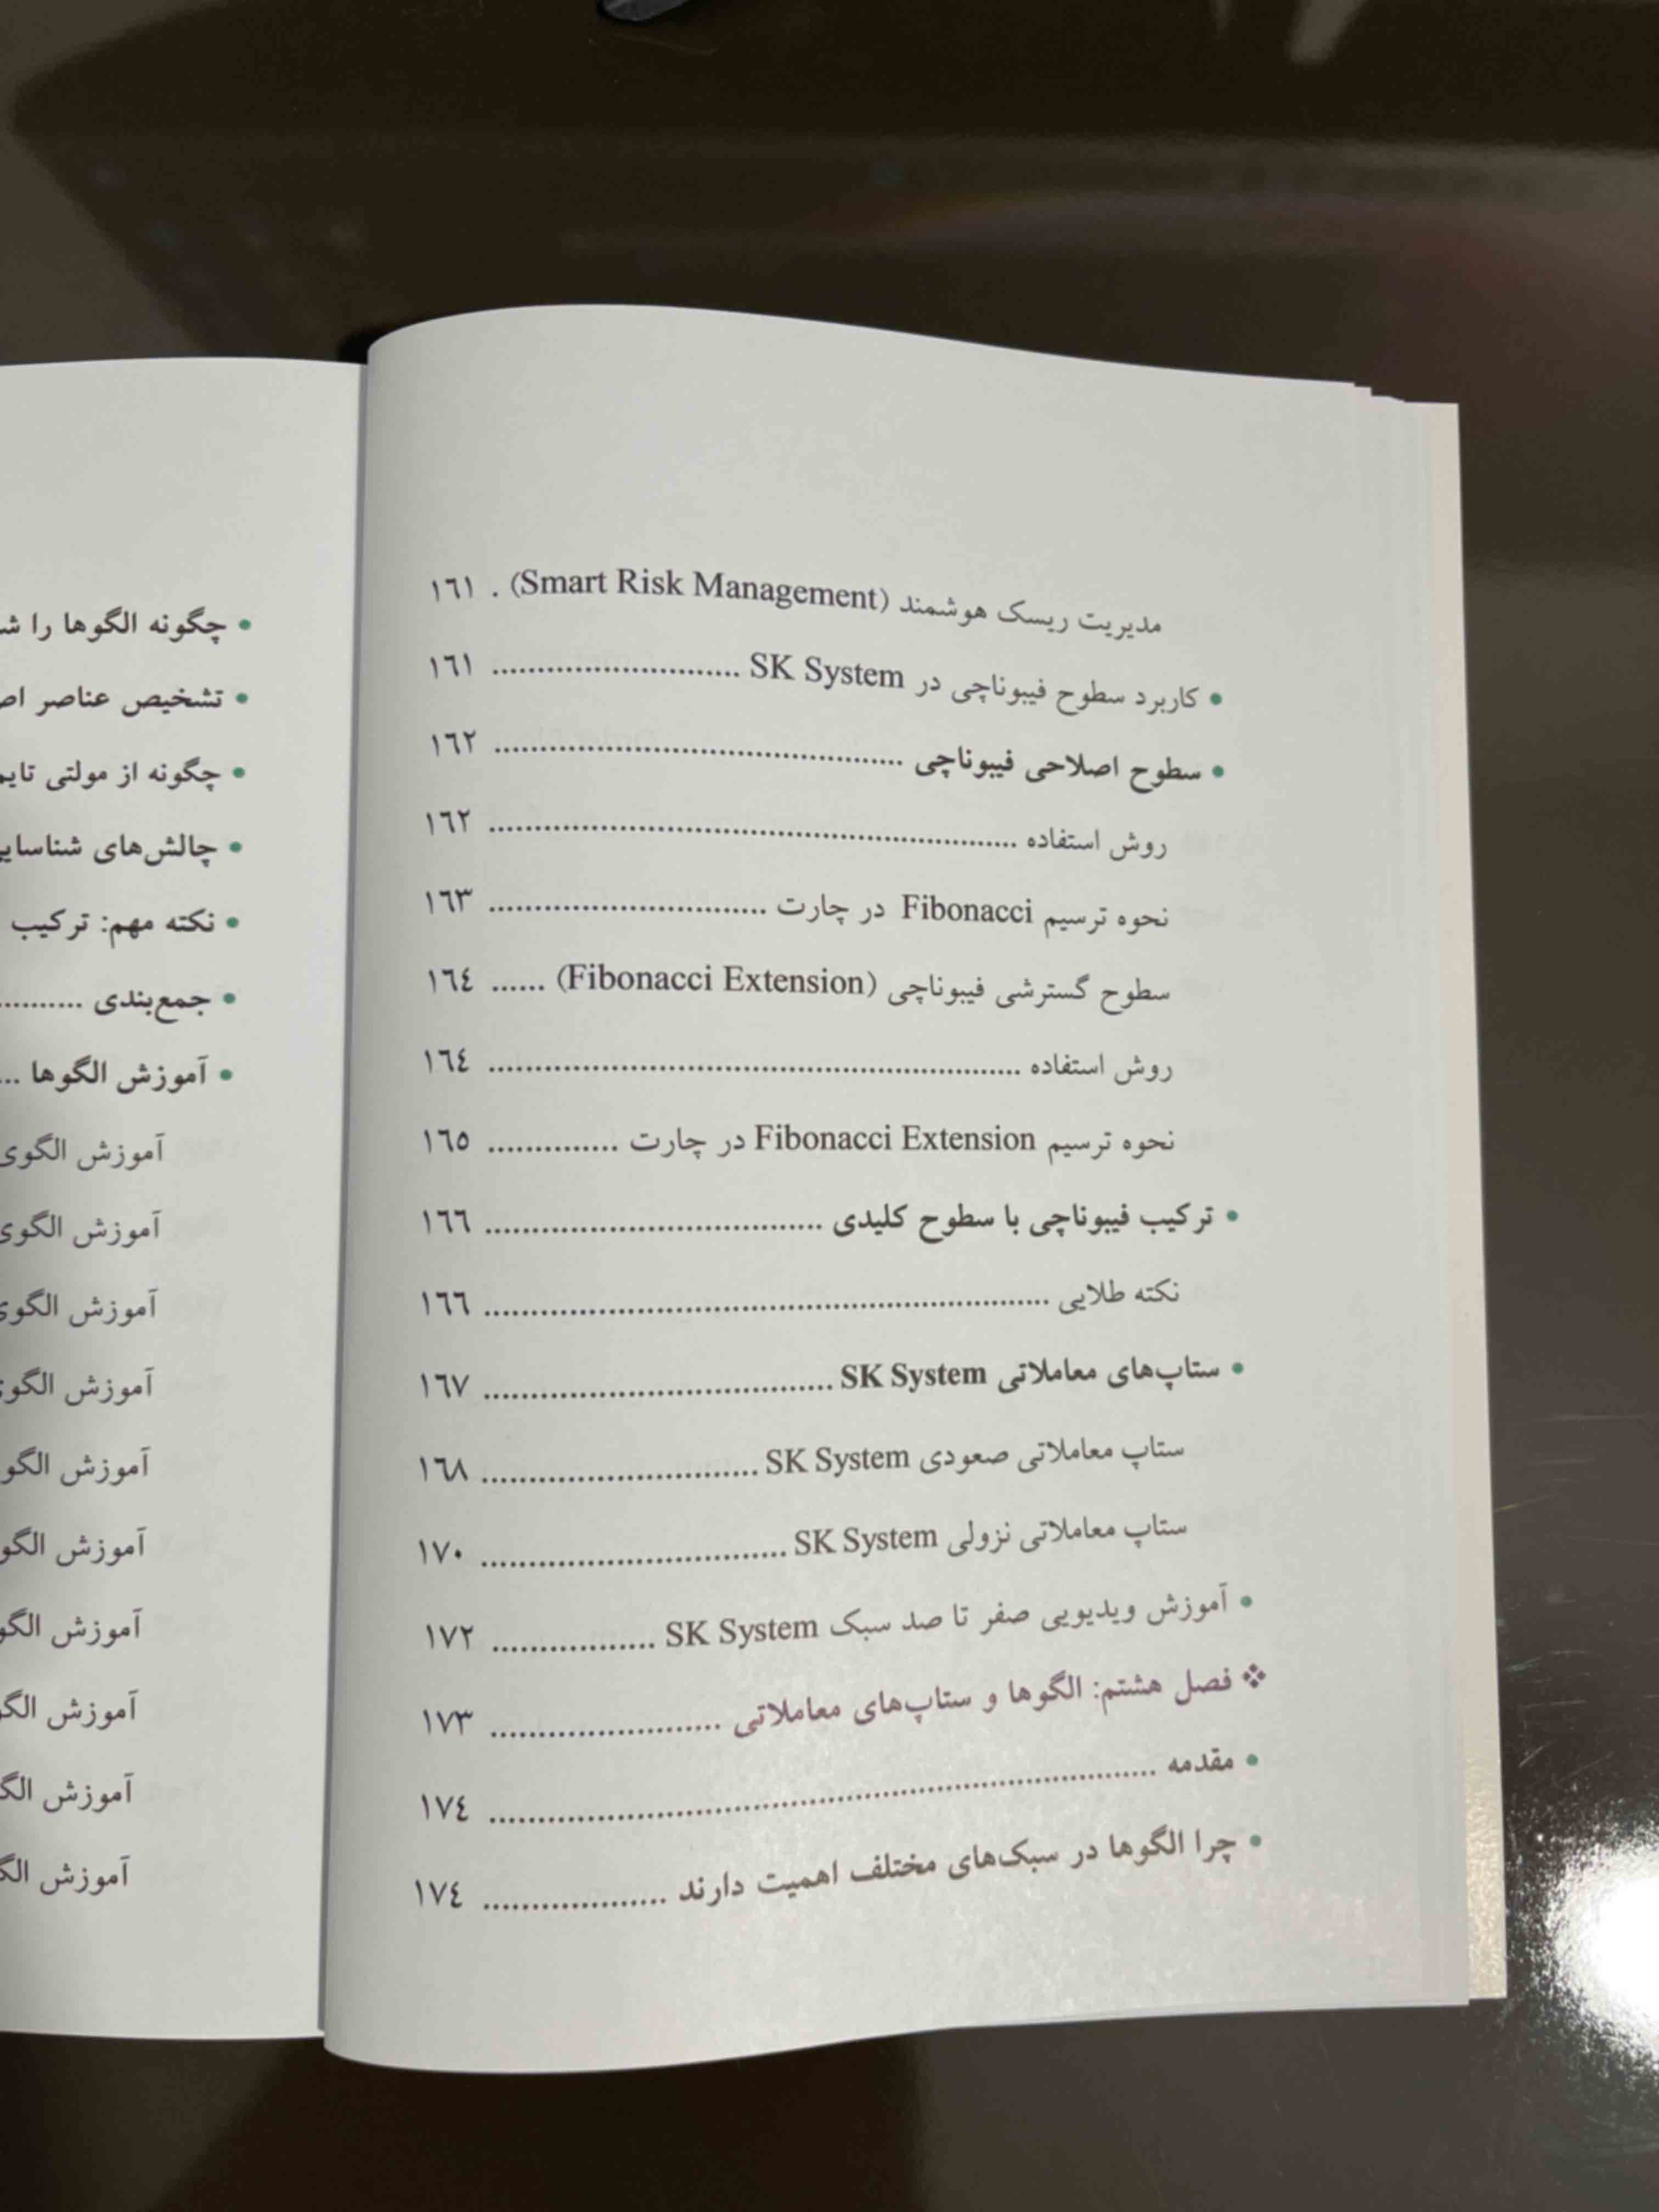 مدیریت ریسک هوشمند (Smart Risk Management) . ١٦١
• کاربرد سطوح فیبوناچی در SK System ........................... ١٦١
• سطوح اصلاحی فیبوناچی ............................................ ١٦٢
روش استفاده ......................................................... ١٦٢
نحوه ترسیم Fibonacci در چارت .............................. ١٦٣
سطوح گسترشی فیبوناچی (Fibonacci Extension) ...... ١٦٤
روش استفاده ......................................................... ١٦٤
نحوه ترسیم Fibonacci Extension در چارت .............. ١٦٥
• ترکیب فیبوناچی با سطوح کلیدی .................................... ١٦٦
نکته طلایی ............................................................ ١٦٦
• ستاپ‌های معاملاتی SK System ..................................... ١٦٧
ستاپ معاملاتی صعودی SK System ............................. ١٦٨
ستاپ معاملاتی نزولی SK System ................................ ١٧٠
• آموزش ویدیویی صفر تا صد سبک SK System ................. ١٧٢
❖ فصل هشتم: الگوها و ستاپ‌های معاملاتی ........................ ١٧٣
• مقدمه ...................................................................... ١٧٤
• چرا الگوها در سبک‌های مختلف اهمیت دارند ................... ١٧٤
• چگونه الگوها را
• تشخیص عناصر
• چگونه از مولتی
• چالش‌های
• نکته مهم: ترکیب
• جمع‌بندی ..........
• آموزش الگوها ...
آموزش الگوی
آموزش الگوی
آموزش الگوی
آموزش
آموزش
آموزش
آموزش
آموزش
آموزش
آموزش